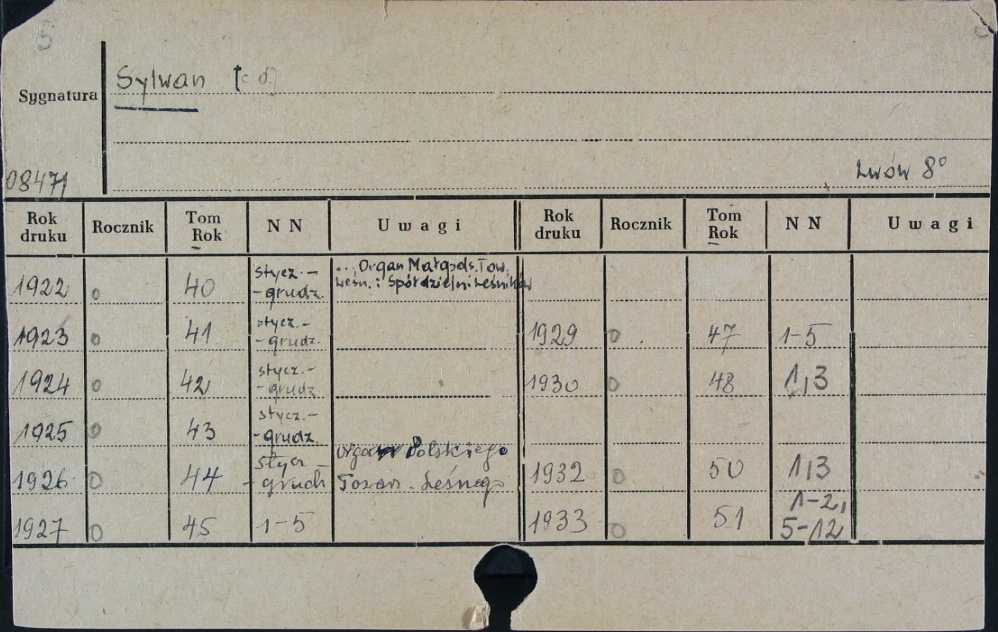 Sylwan [c d.]
Sygnatura
08471
Lwów 8°
Rok druku Rocznik Tom Rok N N Uwagi Rok druku Rocznik Tom Rok N N Uwagi
1922 0 40 stycz.- -grudz. ... Organ Małop­ols. Tow. Leśn. i Spółdzielni Leśników
1923 0 41 stycz.- -grudz. 1929 0 47 1-5
1924 0 42 stycz.- -grudz 1930 0 48 1,3
1925 0 43 stycz.- -grudz.
1926 0 44 stycz - grudz Organ Polskiego Towarz. Leśnego 1932 0 50 1,3
1927 0 45 1-5 1933 0 51 1-2, 5-12